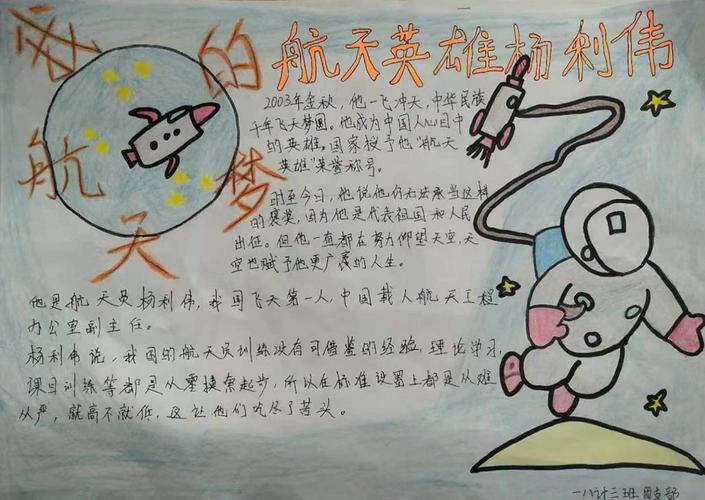 航天英雄杨利伟
我的航天梦
2003年金秋，他一飞冲天，中华民族
千年飞天梦圆。他成为中国人心目中
的英雄，国家授予他“航天
英雄”荣誉称号。
时至今日，他说他仍无法承当这样
的褒奖，因为他是代表祖国和人民
出征。但他一直都在努力仰望天空，天
空也赋予他更广袤的人生。
他是航天员杨利伟，我国飞天第一人，中国载人航天工程
办公室副主任。
杨利伟说，我国的航天员训练没有可借鉴的经验，理论学习，
课目训练等都是从零摸索起步，所以在标准设置上都是从难
从严，就高不就低，这让他们吃尽了苦头。
一八计三班 团支部